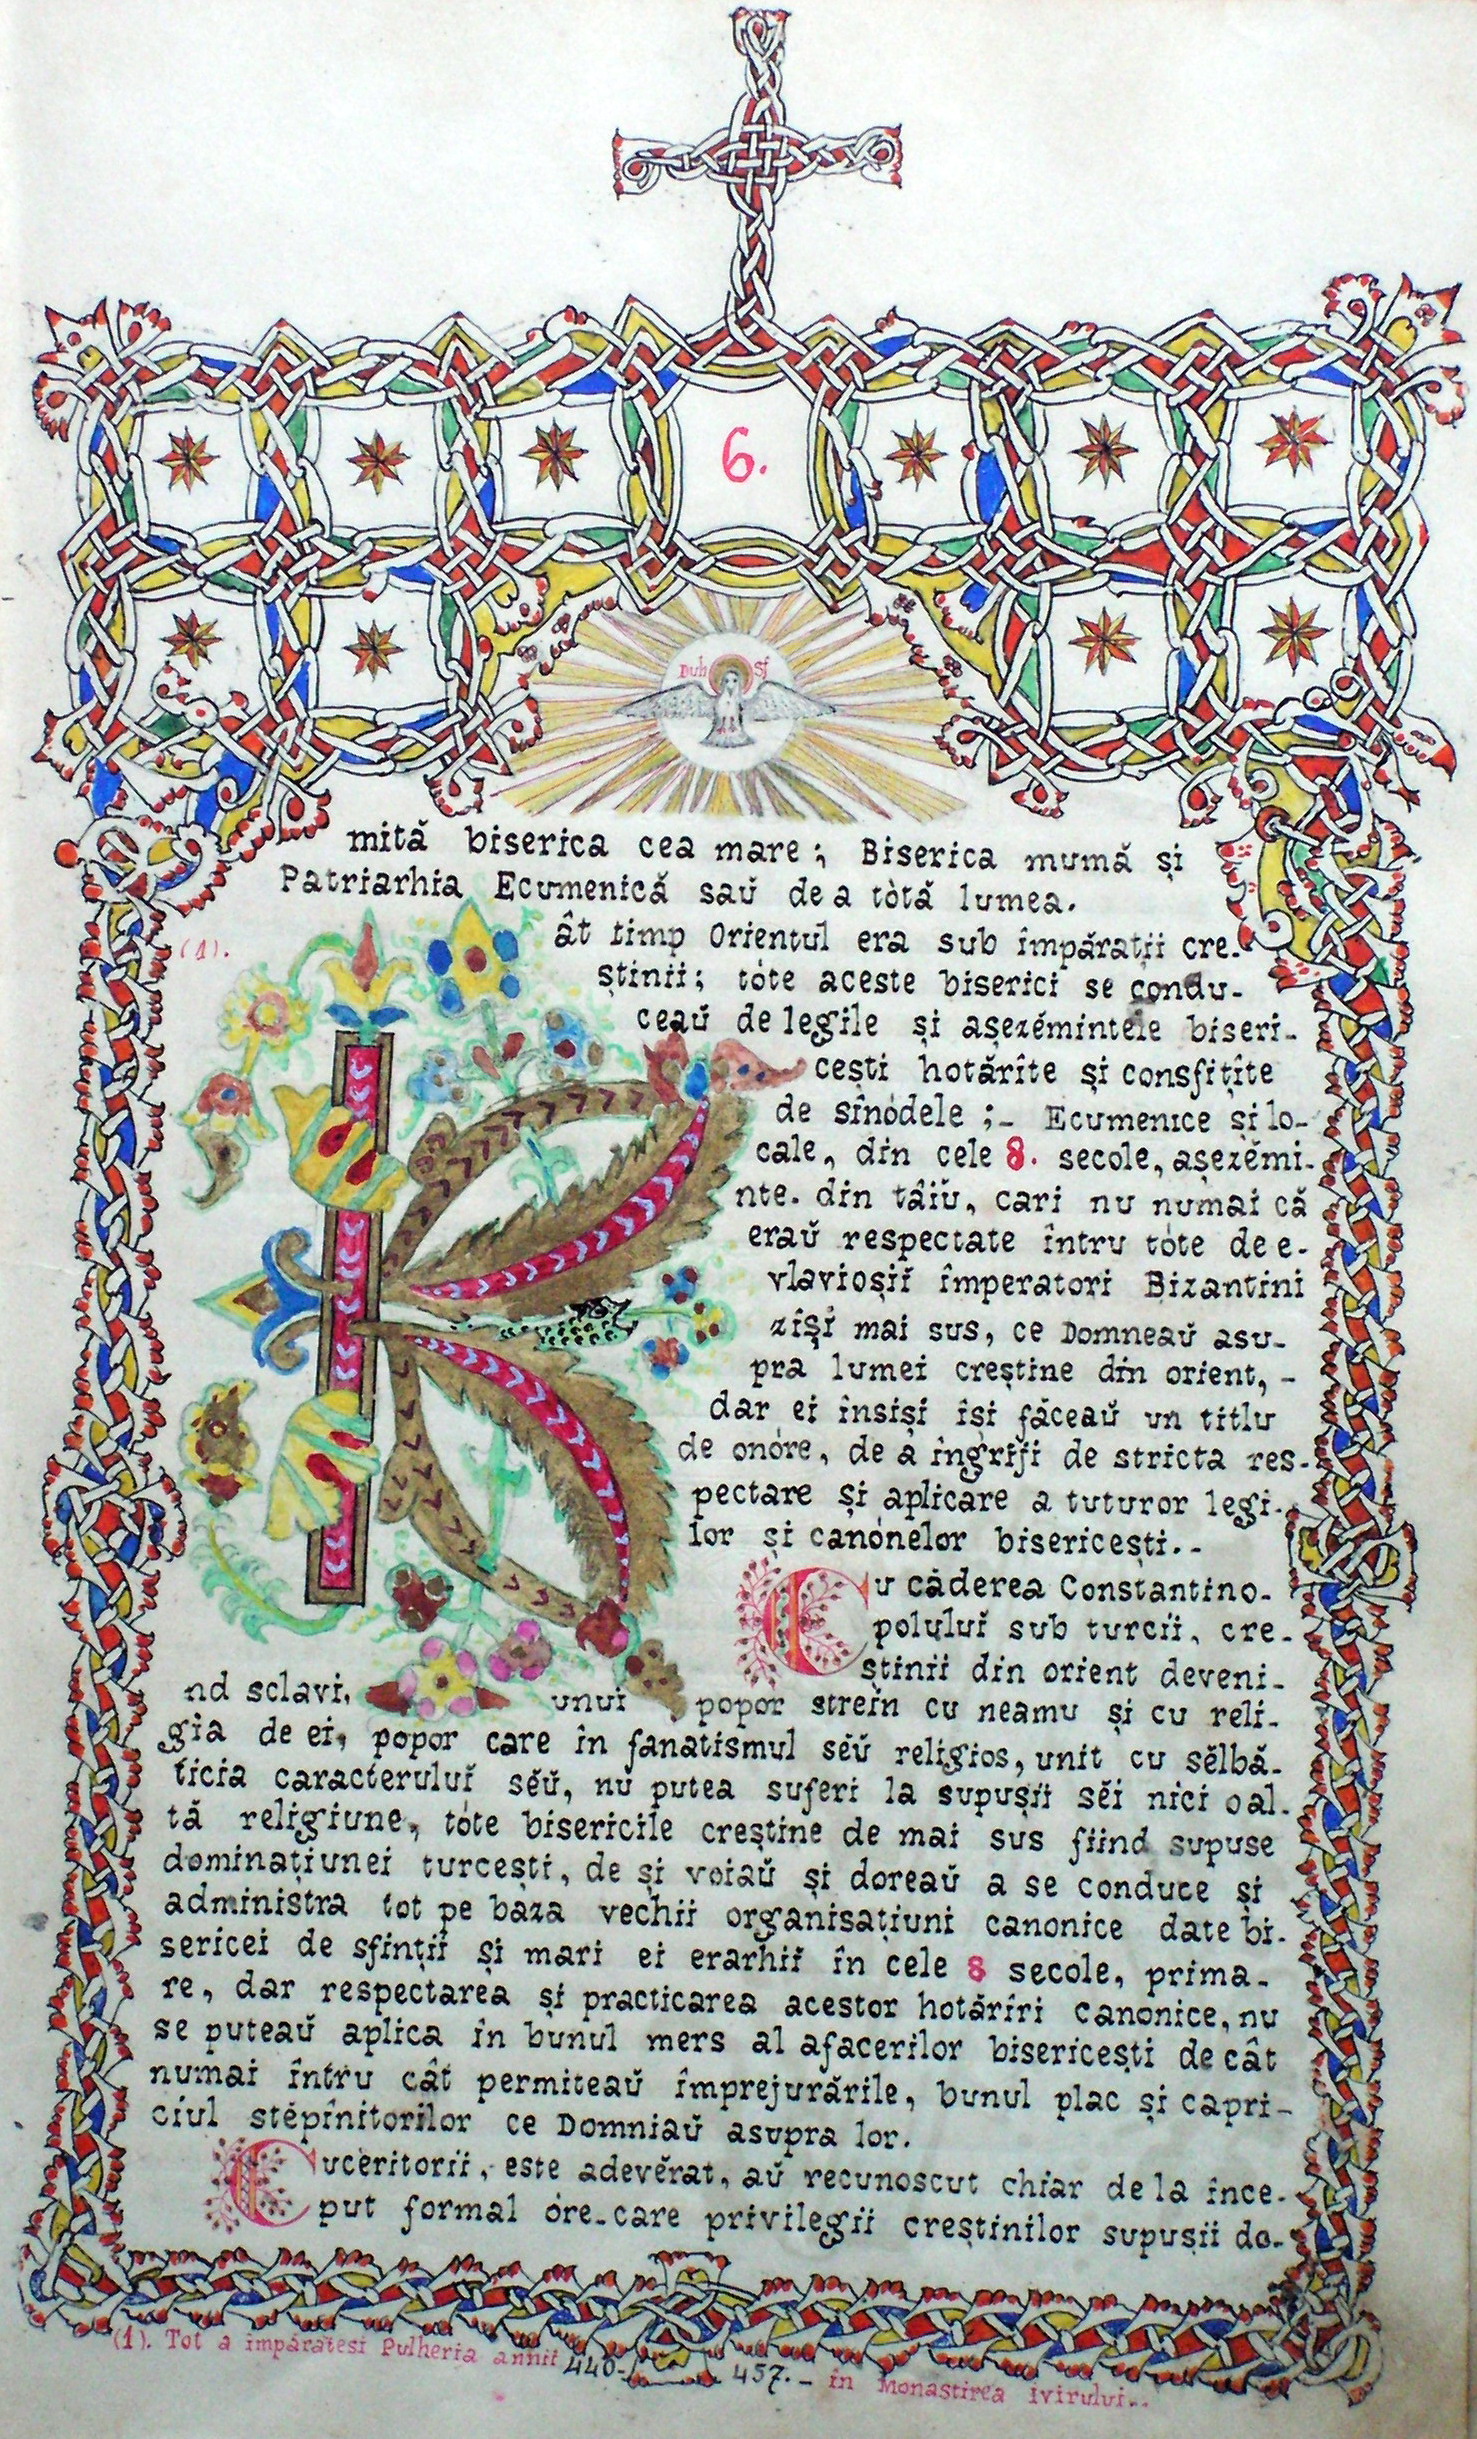 6.
Duh Sf
mită biserica cea mare; Biserica mumă și
Patriarhia Ecumenică saŭ de a tòtă lumea.
(1).
K
ât timp Orientul era sub împărații cre-
știnii; tòte aceste biserici se condu-
ceaŭ de legile și așezĕmintele biseri-
cești hotărîte și consfițite
de sînodele ;- Ecumenice și lo-
cale, din cele 8. secole, așezĕmi-
nte. din tâiŭ, cari nu numai că
eraŭ respectate întru tóte de e-
vlavioșiĭ împeratori Bizantini
ziși mai sus, ce Domneaŭ asu-
pra lumei creștine din orient, -
dar ei însiși iși făceaŭ un titlu
de onóre, de a îngriji de stricta res-
pectare și aplicare a tuturor legi-
lor și canónelor bisericești.-
Cu căderea Constantino-
poluluĭ sub turcii, cre-
știnii din orient deveni-
nd sclavi, unui popor streîn cu neamu și cu reli-
gia de ei, popor care în fanatismul sĕŭ religios, unit cu sĕlbă-
ticia caracteruluĭ sĕŭ, nu putea suferi la supușii sĕi nici o al-
tă religiune, tóte bisericile creștine de mai sus fiind supuse
dominațiunei turcești, de și voiaŭ și doreaŭ a se conduce și
administra tot pe baza vechii organisațiuni canonice date bi-
sericei de sfinții și mari ei erarhiĭ în cele 8 secole, prima-
re, dar respectarea și practicarea acestor hotărîri canonice, nu
se puteaŭ aplica în bunul mers al afacerilor bisericești de cât
numai întru cât permiteaŭ împrejurările, bunul plac și capri-
ciul stĕpînitorilor ce Domniaŭ asupra lor.
Cuceritorii, este adevĕrat, aŭ recunoscut chiar de la înce-
put formal óre-care privilegii creștinilor supușii do-
(1). Tot a împaratesi Pulheria annii 440- 457.- în Monastirea ivirului..